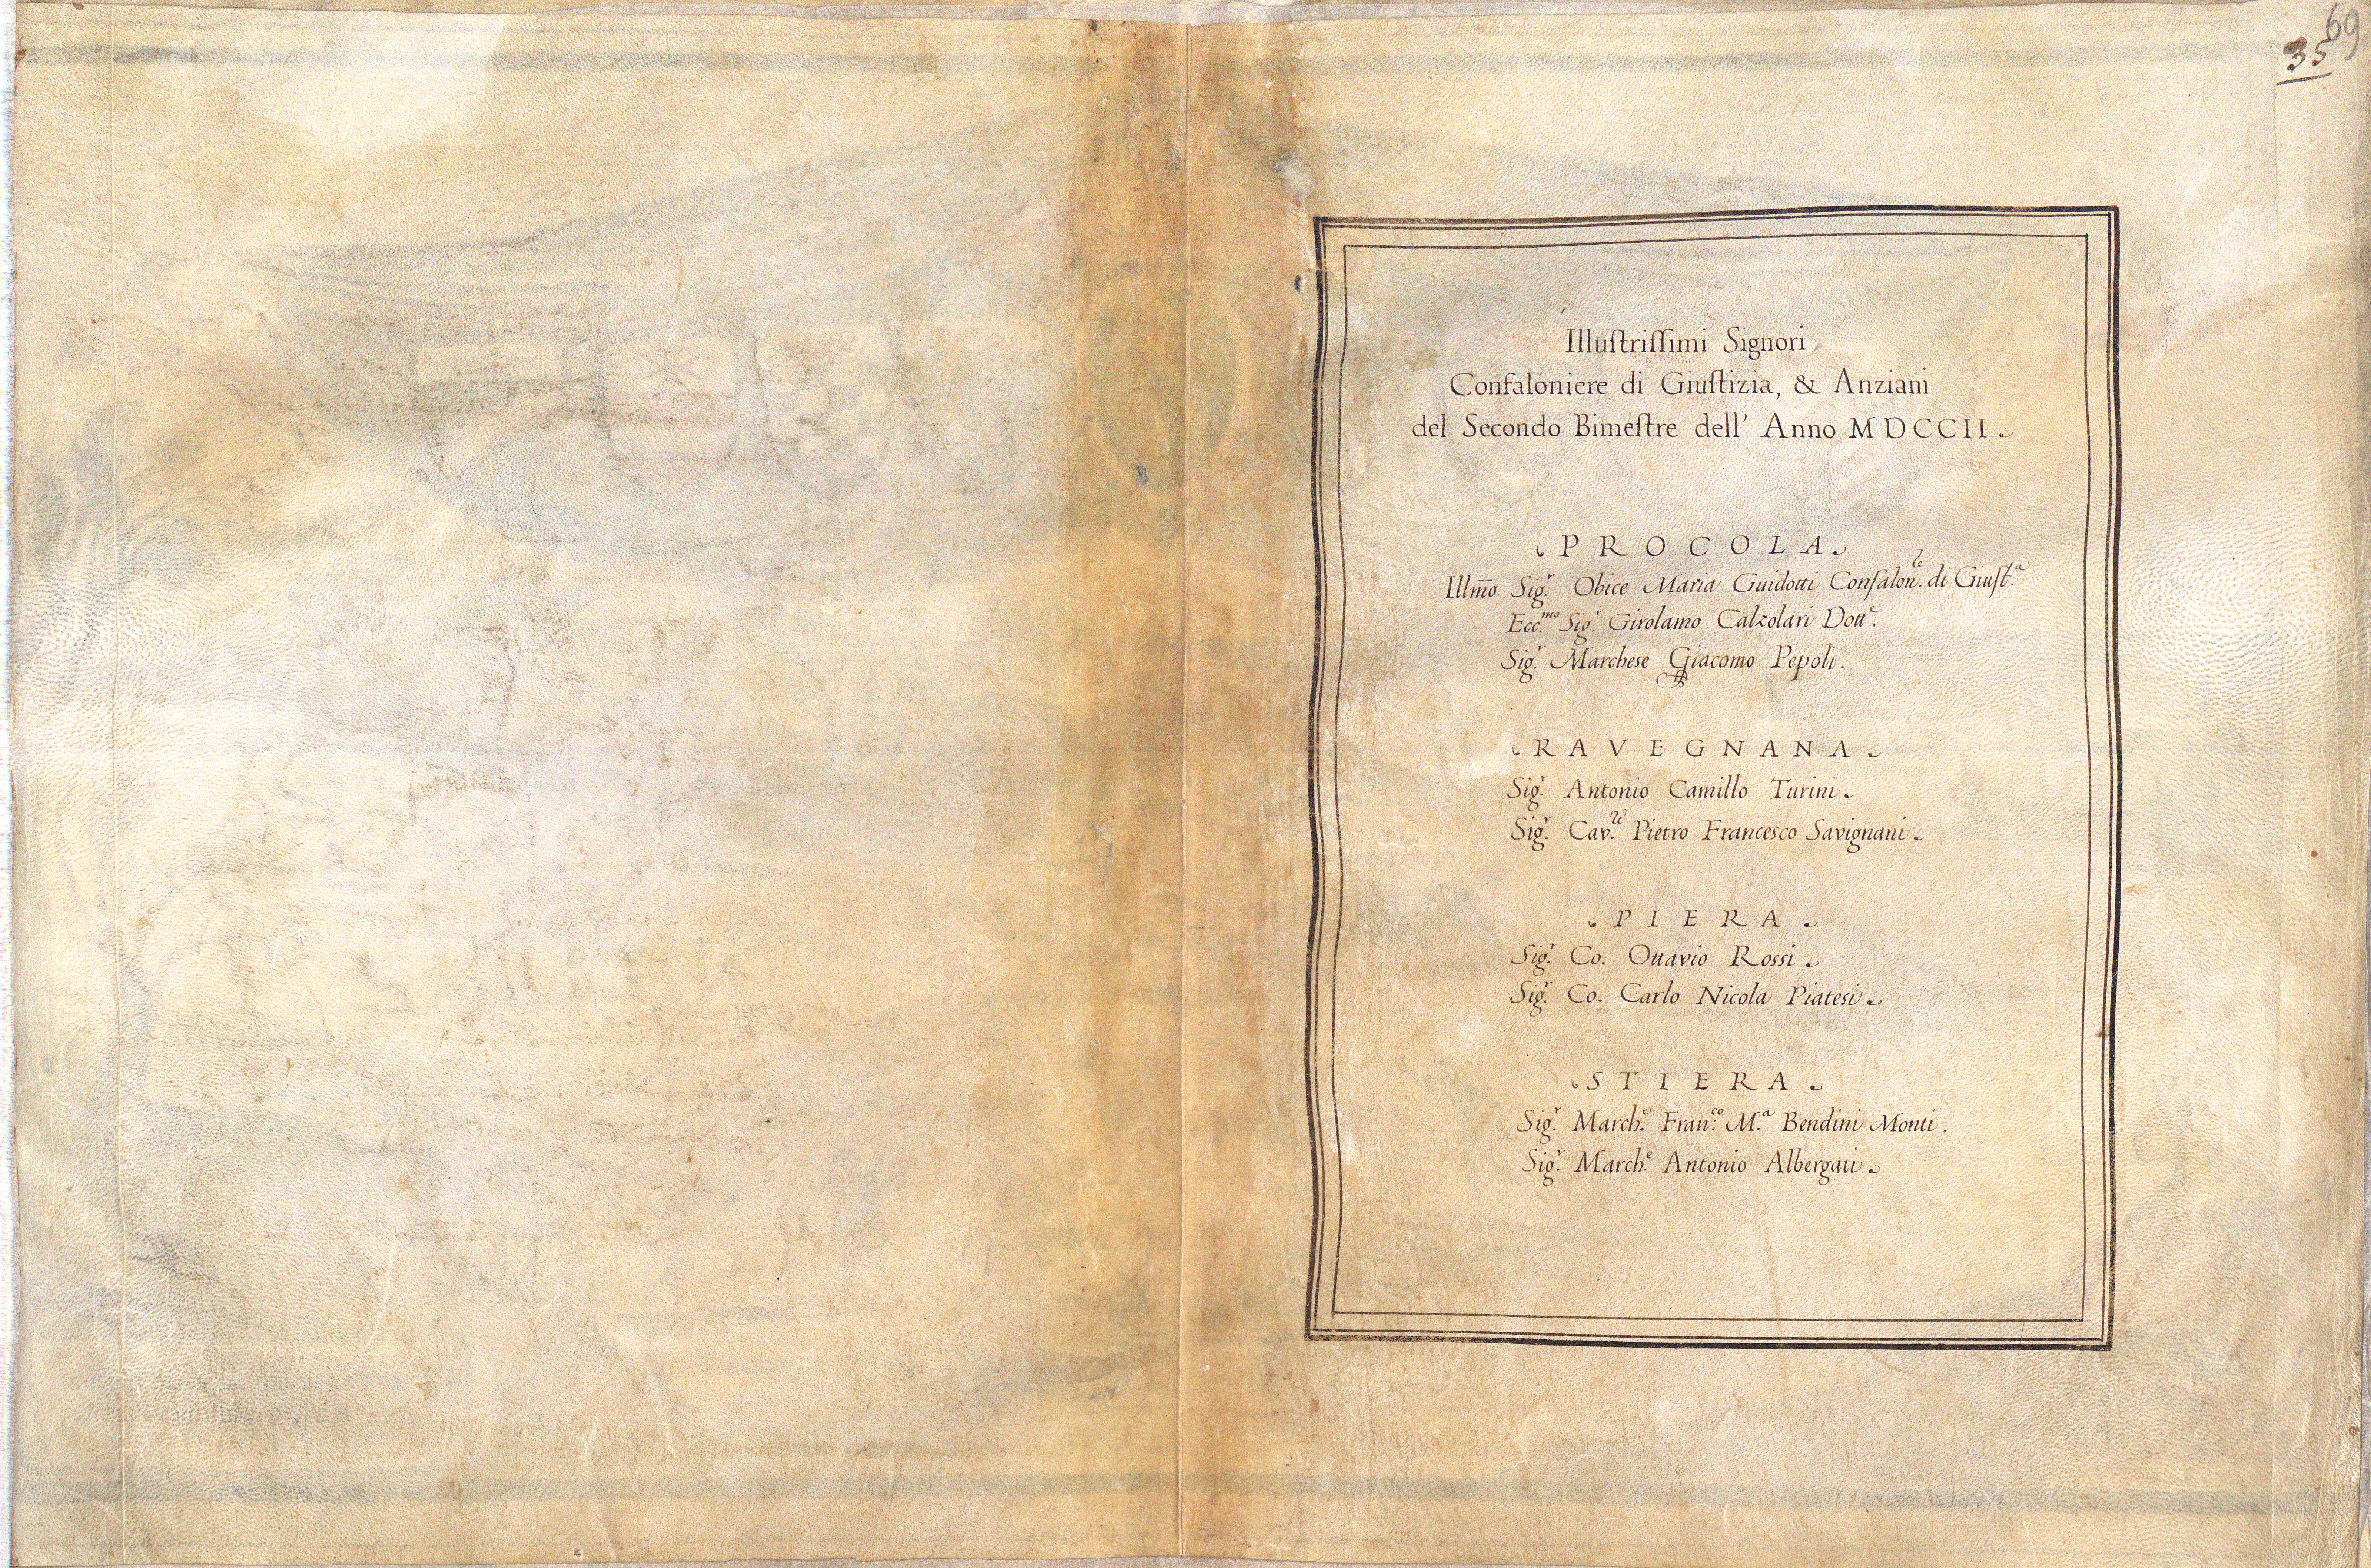 69
35
Illuſtriſſimi Signori
Confaloniere di Giuſtizia, & Anziani
del Secondo Bimeſtre dell' Anno MDCCII.
PROCOLA.
Illm̄o Sig.r Obice Maria Guidotti Confalon.e di Giuſt.a
Ecc.mo Sig.r Girolamo Calzolari Dott.e
Sig.r Marchese Giacomo Pepoli.
RAVEGNANA.
Sig.r Antonio Camillo Turini.
Sig.r Cav.re Pietro Francesco Savignani.
PIERA.
Sig.r Co. Ottavio Rossi.
Sig.r Co. Carlo Nicola Piatesi.
STIERA.
Sig.r March.e Fran.co M.a Bendini Monti.
Sig.r March.e Antonio Albergati.